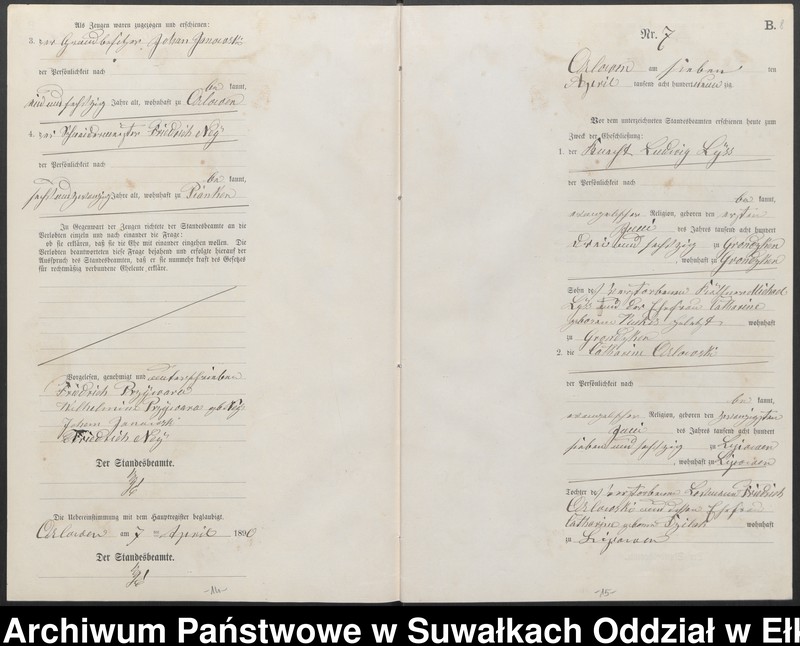 Als Zeugen waren zugezogen und erschienen:
3. der Grundbesitzer Johan Janowski
der Persönlichkeit nach
be kannt,
ein und sechszig Jahre alt, wohnhaft zu Orlowen
4. der Schneidermeister Friedrich Ney
der Persönlichkeit nach
be kannt,
sechs und zwanzig Jahre alt, wohnhaft zu Pianken
In Gegenwart der Zeugen richtete der Standesbeamte an die
Verlobten einzeln und nach einander die Frage:
ob sie erklären, daß sie die Ehe mit einander eingehen wollen. Die
Verlobten beantworteten diese Frage bejahend und erfolgte hierauf der
Ausspruch des Standesbeamten, daß er sie nunmehr kraft des Gesetzes
für rechtmäßig verbundene Eheleute erkläre.
Vorgelesen, genehmigt und unterschrieben
Friedrich Przywara
Wilhelmine Przywara geb. Ney
Johann Janowski
Friedrich Ney
Der Standesbeamte.
Die Uebereinstimmung mit dem Hauptregister beglaubigt.
Orlowen am 7 April 1890
Der Standesbeamte.
-14-
B.
Nr. 7
Orlowen am sieben ten
April tausend acht hundert neun zig
Vor dem unterzeichneten Standesbeamten erschienen heute zum
Zweck der Eheschließung:
1. der Knecht Ludwig Lyss
der Persönlichkeit nach
be kannt,
evangelischer Religion, geboren den ersten
Juni des Jahres tausend acht hundert
drei und sechszig zu Grondzken
, wohnhaft zu Grondzken
Sohn des verstorbenen Käthner Michael
Lyss und der Ehefrau Catharine
geborene wohnhaft
zu Grondzken
2. die Catharine Orlowski
der Persönlichkeit nach
be kannt,
evangelischer Religion, geboren den zwanzigsten
Juni des Jahres tausend acht hundert
sieben und sechszig zu Lipowen
, wohnhaft zu Lipowen
Tochter des verstorbenen Losmann Friedrich
Orlowski und dessen Ehefrau
Catharine geborene wohnhaft
zu Lipowen
-15-
Archiwum Państwowe w Suwałkach Oddział w Eł